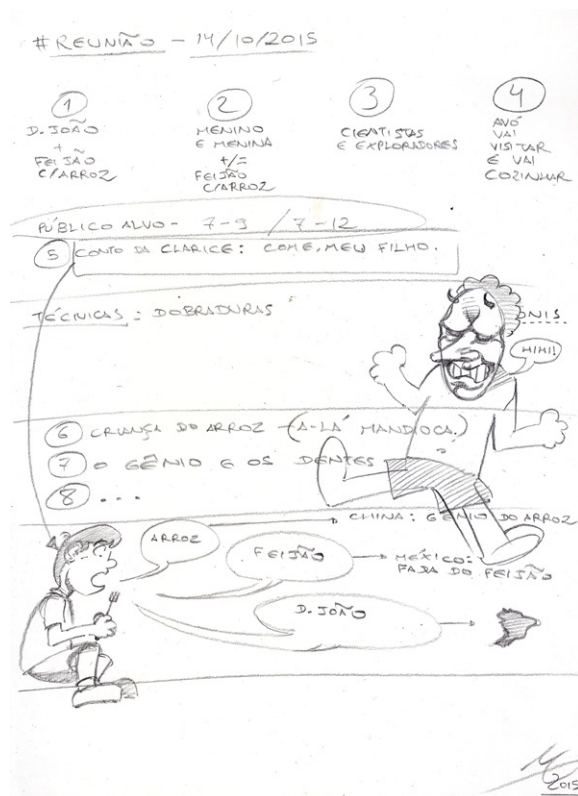 #REUNIÃO - 14/10/2015
1
D. JOÃO
+
FEIJÃO
C/ARROZ
2
MENINO
E MENINA
+/=
FEIJÃO
C/ARROZ
3
CIENTISTAS
E EXPLORADORES
4
AVÓ
VAI
VISITAR
E VAI
COZINHAR
PÚBLICO ALVO - 7-9 / 7-12
5 CONTO DA CLARICE: COME, MEU FILHO.
TÉCNICAS: DOBRADURAS
ONIS.
HIHI!
6 CRIANÇA DO ARROZ - (A-LÁ MANDIOCA.)
7 O GÊNIO E OS DENTES
8 ...
CHINA: GÊNIO DO ARROZ
ARROZ
FEIJÃO
MÉXICO:
FADA DO FEIJÃO
D. JOÃO
2015